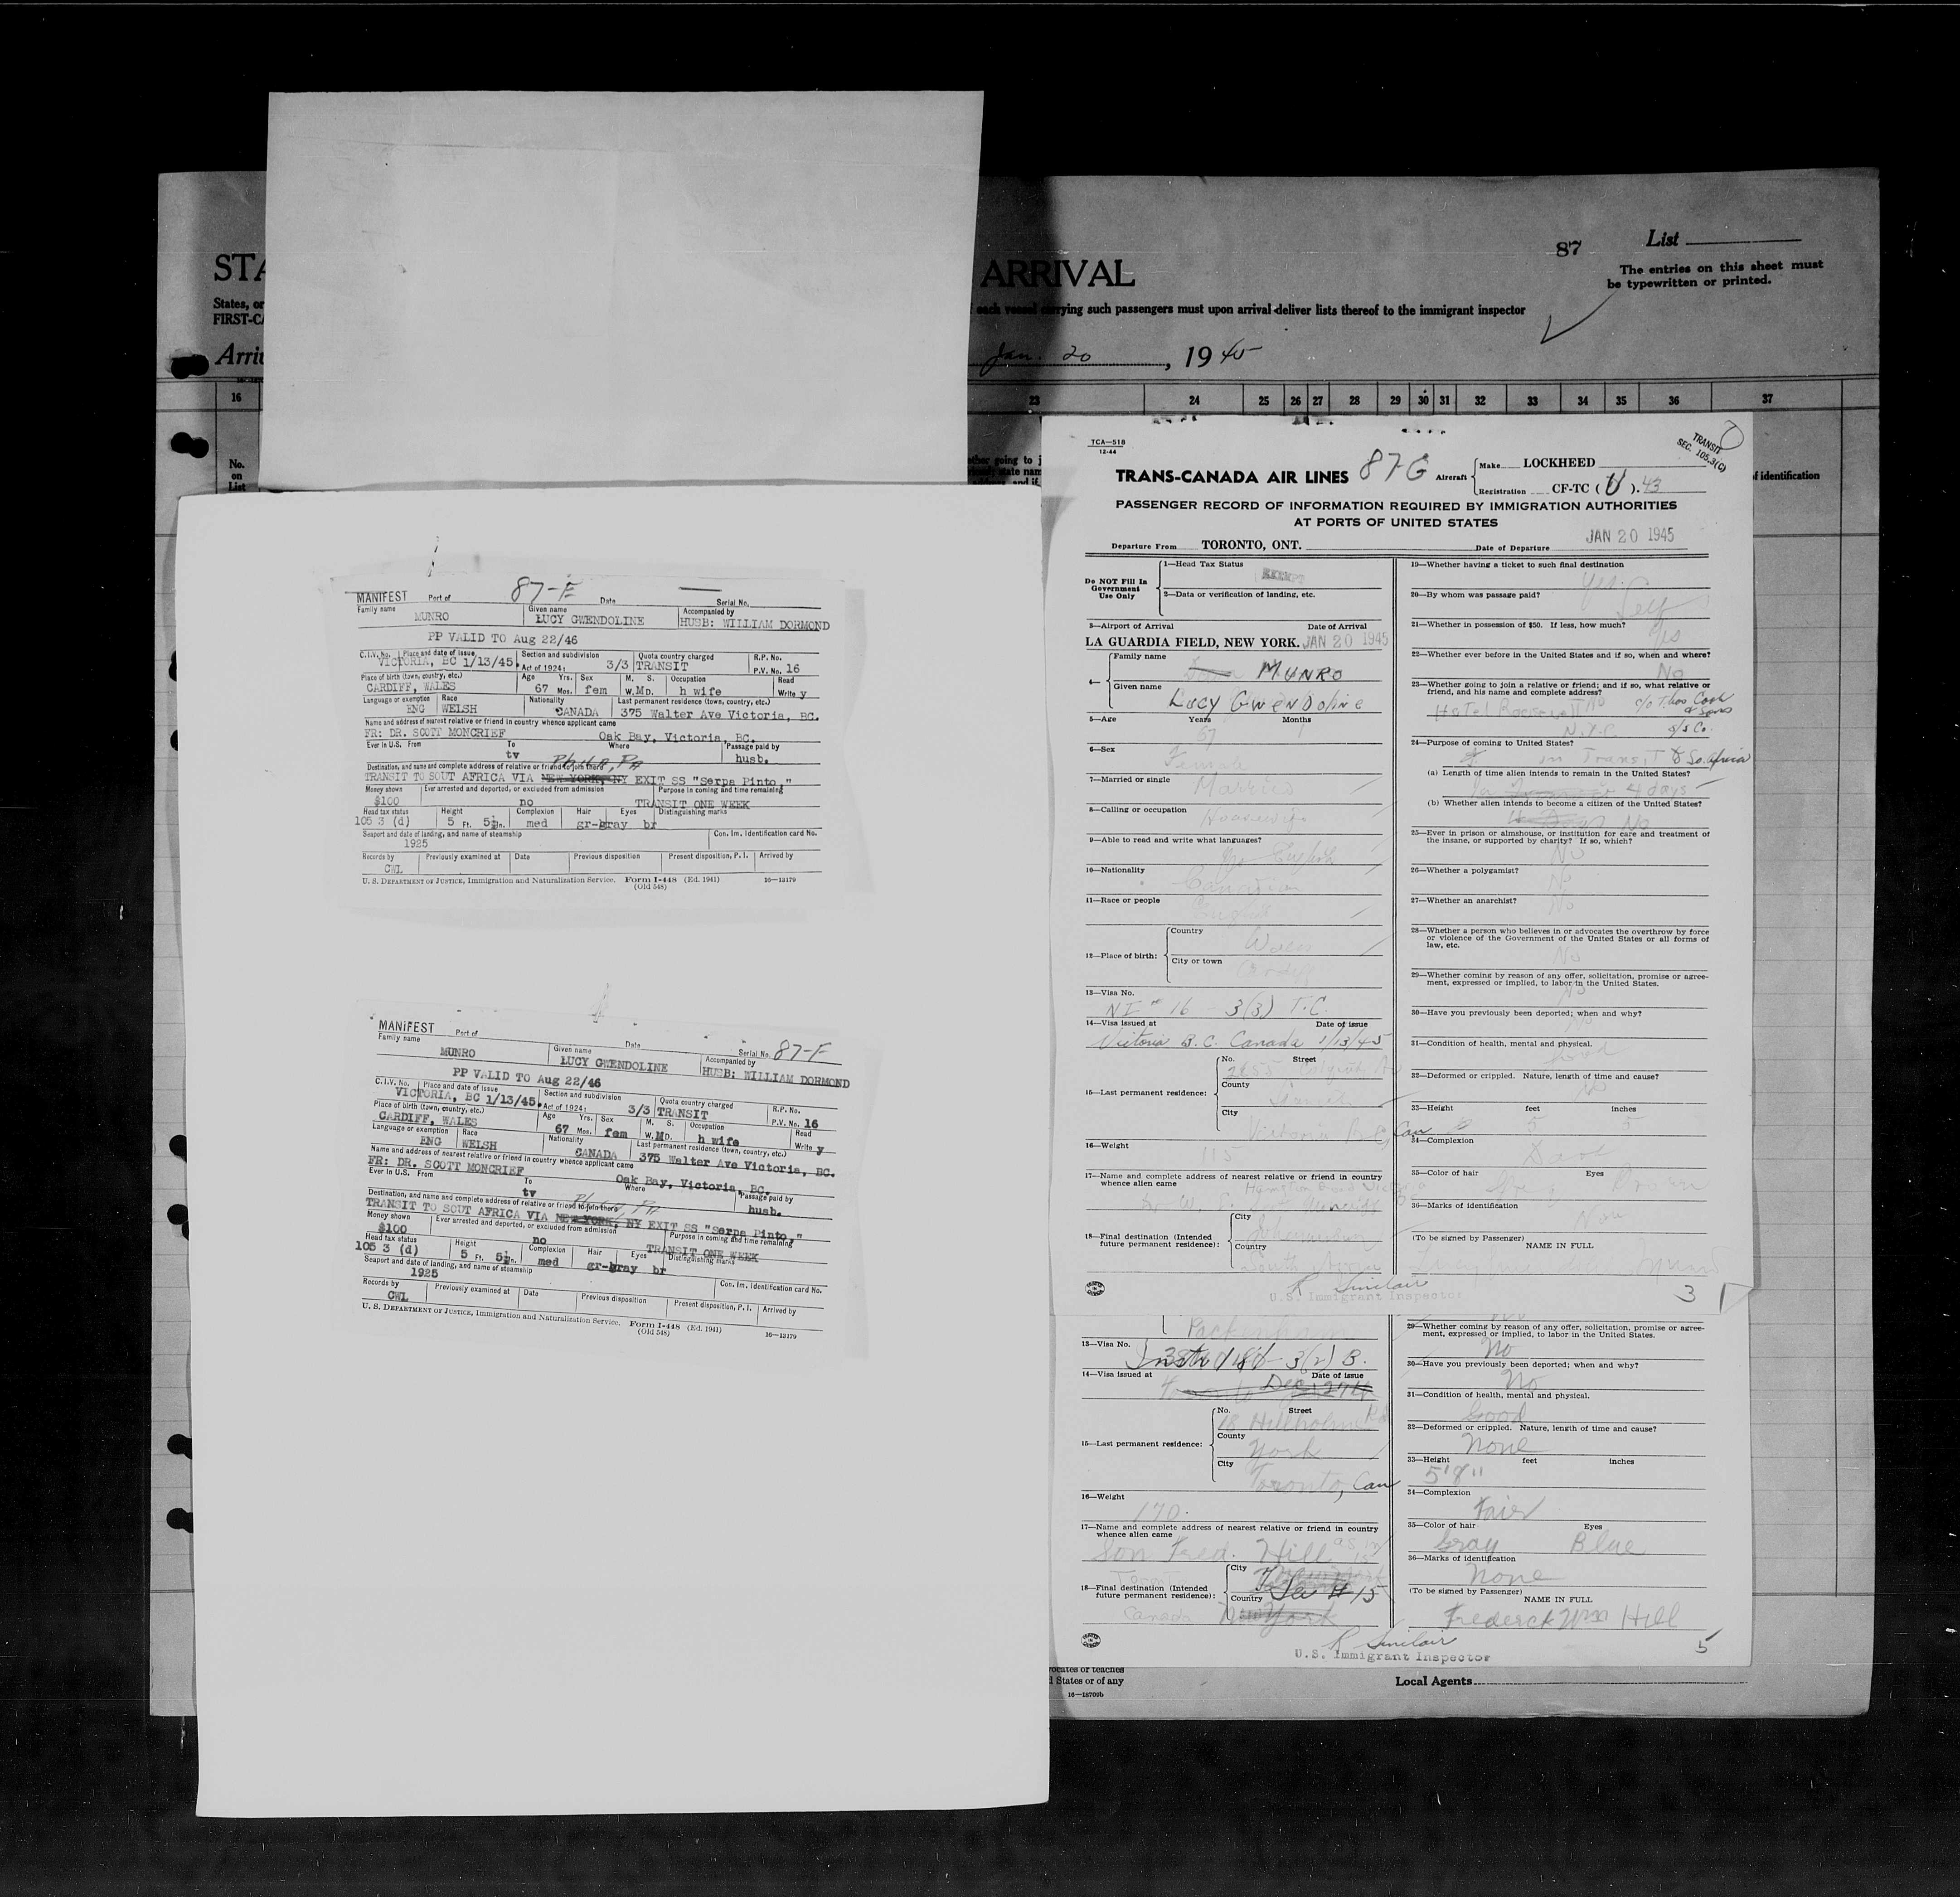 STA
ARRIVAL
87
List
The entries on this sheet must
be typewritten or printed.
States, or
FIRST-CA
each vessel carrying such passengers must upon arrival deliver lists thereof to the immigrant inspector
Arriv
Jan. 20, 1945
16 23 24 25 26 27 28 29 30 31 32 33 34 35 36 37
No.
on
List
of identification
MANIFEST Port of 87-F Date Serial No.
Family name Given name Accompanied by
MUNRO LUCY GWENDOLINE HUSB: WILLIAM DORMOND
PP VALID TO Aug 22/46
C.I.V. No. Place and date of issue Section and subdivision Quota country charged R.P. No.
VICTORIA, BC 1/13/45. Act of 1924: 3/3 TRANSIT P.V. No. 16
Place of birth (town, country, etc.) Age Yrs. Sex M. S. Occupation Read
CARDIFF, WALES 67 Mos. fem W. M D. h wife Write y
Language or exemption Race Nationality Last permanent residence (town, country, etc.)
ENG WELSH CANADA 375 Walter Ave Victoria, BC.
Name and address of nearest relative or friend in country whence applicant came
FR: DR. SCOTT MONCRIEF Oak Bay, Victoria, BC.
Ever in U.S. From To Where Passage paid by
tv Phila, PA husb.
Destination, and name and complete address of relative or friend to join there
TRANSIT TO SOUT AFRICA VIA NEW YORK, NY EXIT SS "Serpa Pinto,"
Money shown Ever arrested and deported, or excluded from admission Purpose in coming and time remaining
$100 no TRANSIT ONE WEEK
Head tax status Height Complexion Hair Eyes Distinguishing marks
105 3 (d) 5 Ft. 5½ In. med gr-gray br
Seaport and date of landing, and name of steamship Con. Im. Identification card No.
1925
Records by Previously examined at Date Previous disposition Present disposition, P. I. Arrived by
CWL
U. S. DEPARTMENT OF JUSTICE, Immigration and Naturalization Service. Form I-448 (Ed. 1941) 16—13179
(Old 548)
MANIFEST Port of Date Serial No. 87-F
Family name Given name Accompanied by
MUNRO LUCY GWENDOLINE HUSB: WILLIAM DORMOND
PP VALID TO Aug 22/46
C.I.V. No. Place and date of issue Section and subdivision Quota country charged R.P. No.
VICTORIA, BC 1/13/45. Act of 1924: 3/3 TRANSIT P.V. No. 16
Place of birth (town, country, etc.) Age Yrs. Sex M. S. Occupation Read
CARDIFF, WALES 67 Mos. fem W. M D. h wife Write y
Language or exemption Race Nationality Last permanent residence (town, country, etc.)
ENG WELSH CANADA 375 Walter Ave Victoria, BC.
Name and address of nearest relative or friend in country whence applicant came
FR: DR. SCOTT MONCRIEF Oak Bay, Victoria, BC.
Ever in U.S. From To Where Passage paid by
tv Phila, PA husb.
Destination, and name and complete address of relative or friend to join there
TRANSIT TO SOUT AFRICA VIA NEW YORK, NY EXIT SS "Serpa Pinto,"
Money shown Ever arrested and deported, or excluded from admission Purpose in coming and time remaining
$100 no TRANSIT ONE WEEK
Head tax status Height Complexion Hair Eyes Distinguishing marks
105 3 (d) 5 Ft. 5½ In. med gr-gray br
Seaport and date of landing, and name of steamship Con. Im. Identification card No.
1925
Records by Previously examined at Date Previous disposition Present disposition, P. I. Arrived by
CWL
U. S. DEPARTMENT OF JUSTICE, Immigration and Naturalization Service. Form I-448 (Ed. 1941) 16—13179
(Old 548)
TCA—518
12-44
TRANSIT
SEC. 105.3(C)
TRANS-CANADA AIR LINES 87G Aircraft Make LOCKHEED
Registration CF-TC (U). 43
PASSENGER RECORD OF INFORMATION REQUIRED BY IMMIGRATION AUTHORITIES
AT PORTS OF UNITED STATES
Departure From TORONTO, ONT. Date of Departure JAN 20 1945
Do NOT Fill In
Government
Use Only
1—Head Tax Status
EXEMPT
2—Data or verification of landing, etc.
3—Airport of Arrival Date of Arrival
LA GUARDIA FIELD, NEW YORK. JAN 20 1945
4— Family name
MUNRO
Given name
Lucy Gwendoline
5—Age Years Months
67
6—Sex
Female
7—Married or single
Married
8—Calling or occupation
Housewife
9—Able to read and write what languages?
Yes English
10—Nationality
Canadian
11—Race or people
English
12—Place of birth: Country
Wales
City or town
Cardiff
13—Visa No.
NI # 16 - 3(3) T.C.
14—Visa issued at Date of issue
Victoria B.C. Canada 1/13/45
15—Last permanent residence: No. Street
County
City
Victoria B.C. Can
16—Weight
115
17—Name and complete address of nearest relative or friend in country
whence alien came
18—Final destination (Intended
future permanent residence): City
Johannesburg
Country
South Africa
R Sinclair
U.S. Immigrant Inspector
19—Whether having a ticket to such final destination
Yes.
20—By whom was passage paid?
Self
21—Whether in possession of $50. If less, how much?
Yes
22—Whether ever before in the United States and if so, when and where?
No
23—Whether going to join a relative or friend; and if so, what relative or
friend, and his name and complete address?
No c/o Thos Cook
& Sons
Hotel Roosevelt
N.Y.C. S/S Co.
24—Purpose of coming to United States?
in Transit to So. Africa
(a) Length of time alien intends to remain in the United States?
4 days
(b) Whether alien intends to become a citizen of the United States?
No
25—Ever in prison or almshouse, or institution for care and treatment of
the insane, or supported by charity? If so, which?
No
26—Whether a polygamist?
No
27—Whether an anarchist?
No
28—Whether a person who believes in or advocates the overthrow by force
or violence of the Government of the United States or all forms of
law, etc.
No
29—Whether coming by reason of any offer, solicitation, promise or agree-
ment, expressed or implied, to labor in the United States.
No
30—Have you previously been deported; when and why?
31—Condition of health, mental and physical.
Good
32—Deformed or crippled. Nature, length of time and cause?
No
33—Height feet inches
5 5
34—Complexion
Dark
35—Color of hair Eyes
Brown
36—Marks of identification
None
(To be signed by Passenger)
NAME IN FULL
3
Packenham
13—Visa No.
3(2) B.
14—Visa issued at Date of issue
15—Last permanent residence: No. Street
18 Hillholm Rd
County
York
City
Toronto, Can
16—Weight
170.
17—Name and complete address of nearest relative or friend in country
whence alien came
Son Fred. Hill
18—Final destination (Intended
future permanent residence): City
Toronto See #15
Country
Canada New York
R Sinclair
U.S. Immigrant Inspector
29—Whether coming by reason of any offer, solicitation, promise or agree-
ment, expressed or implied, to labor in the United States.
No
30—Have you previously been deported; when and why?
No
31—Condition of health, mental and physical.
Good
32—Deformed or crippled. Nature, length of time and cause?
None
33—Height feet inches
5'8"
34—Complexion
Fair
35—Color of hair Eyes
Gray Blue
36—Marks of identification
None
(To be signed by Passenger)
NAME IN FULL
Frederick Wm Hill
5
vocates or teaches
d States or of any
16—18709b
Local Agents